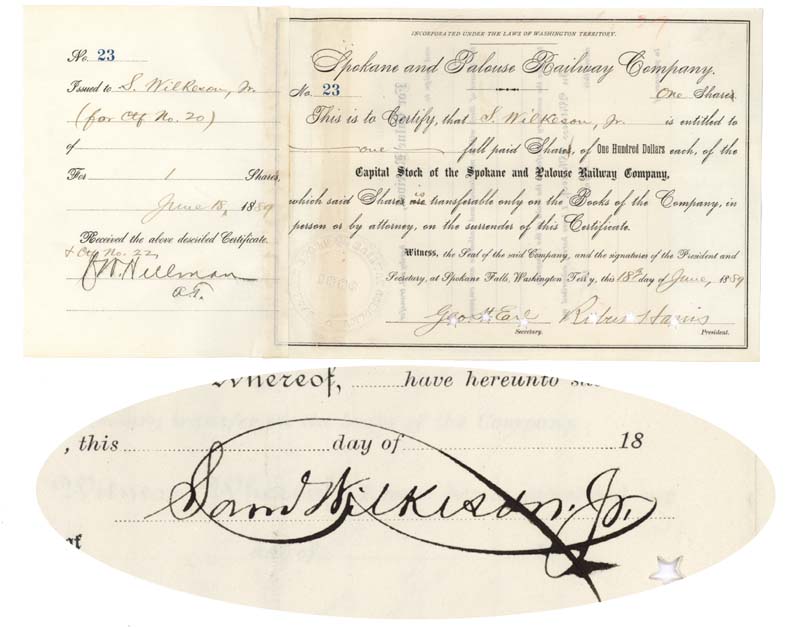 No. 23
Issued to S. Wilkeson, Jr.
(for Ctf No. 20)
of
For 1 Shares,
June 18, 1889
Received the above descided Certificate.
& Ctf No. 22,
W. Hillman
INCORPORATED UNDER THE LAWS OF WASHINGTON TERRITORY.
Spokane and Palouse Railway Company.
No. 23 One Shares
This is to Certify, that S. Wilkeson, Jr. is entitled to
one full paid Shares, of One Hundred Dollars each, of the
Capital Stock of the Spokane and Palouse Railway Company,
which said Shares is transferable only on the Books of the Company, in
person or by attorney, on the surrender of this Certificate.
Witness, the Seal of the said Company, and the signatures of the President and
Secretary, at Spokane Falls, Washington Ter'y, this 18th day of June, 1889
Geo. H. Earl Robert Harris
Secretary. President.
Whereof, have hereunto
, this day of 18
Sam Wilkeson. Jr.